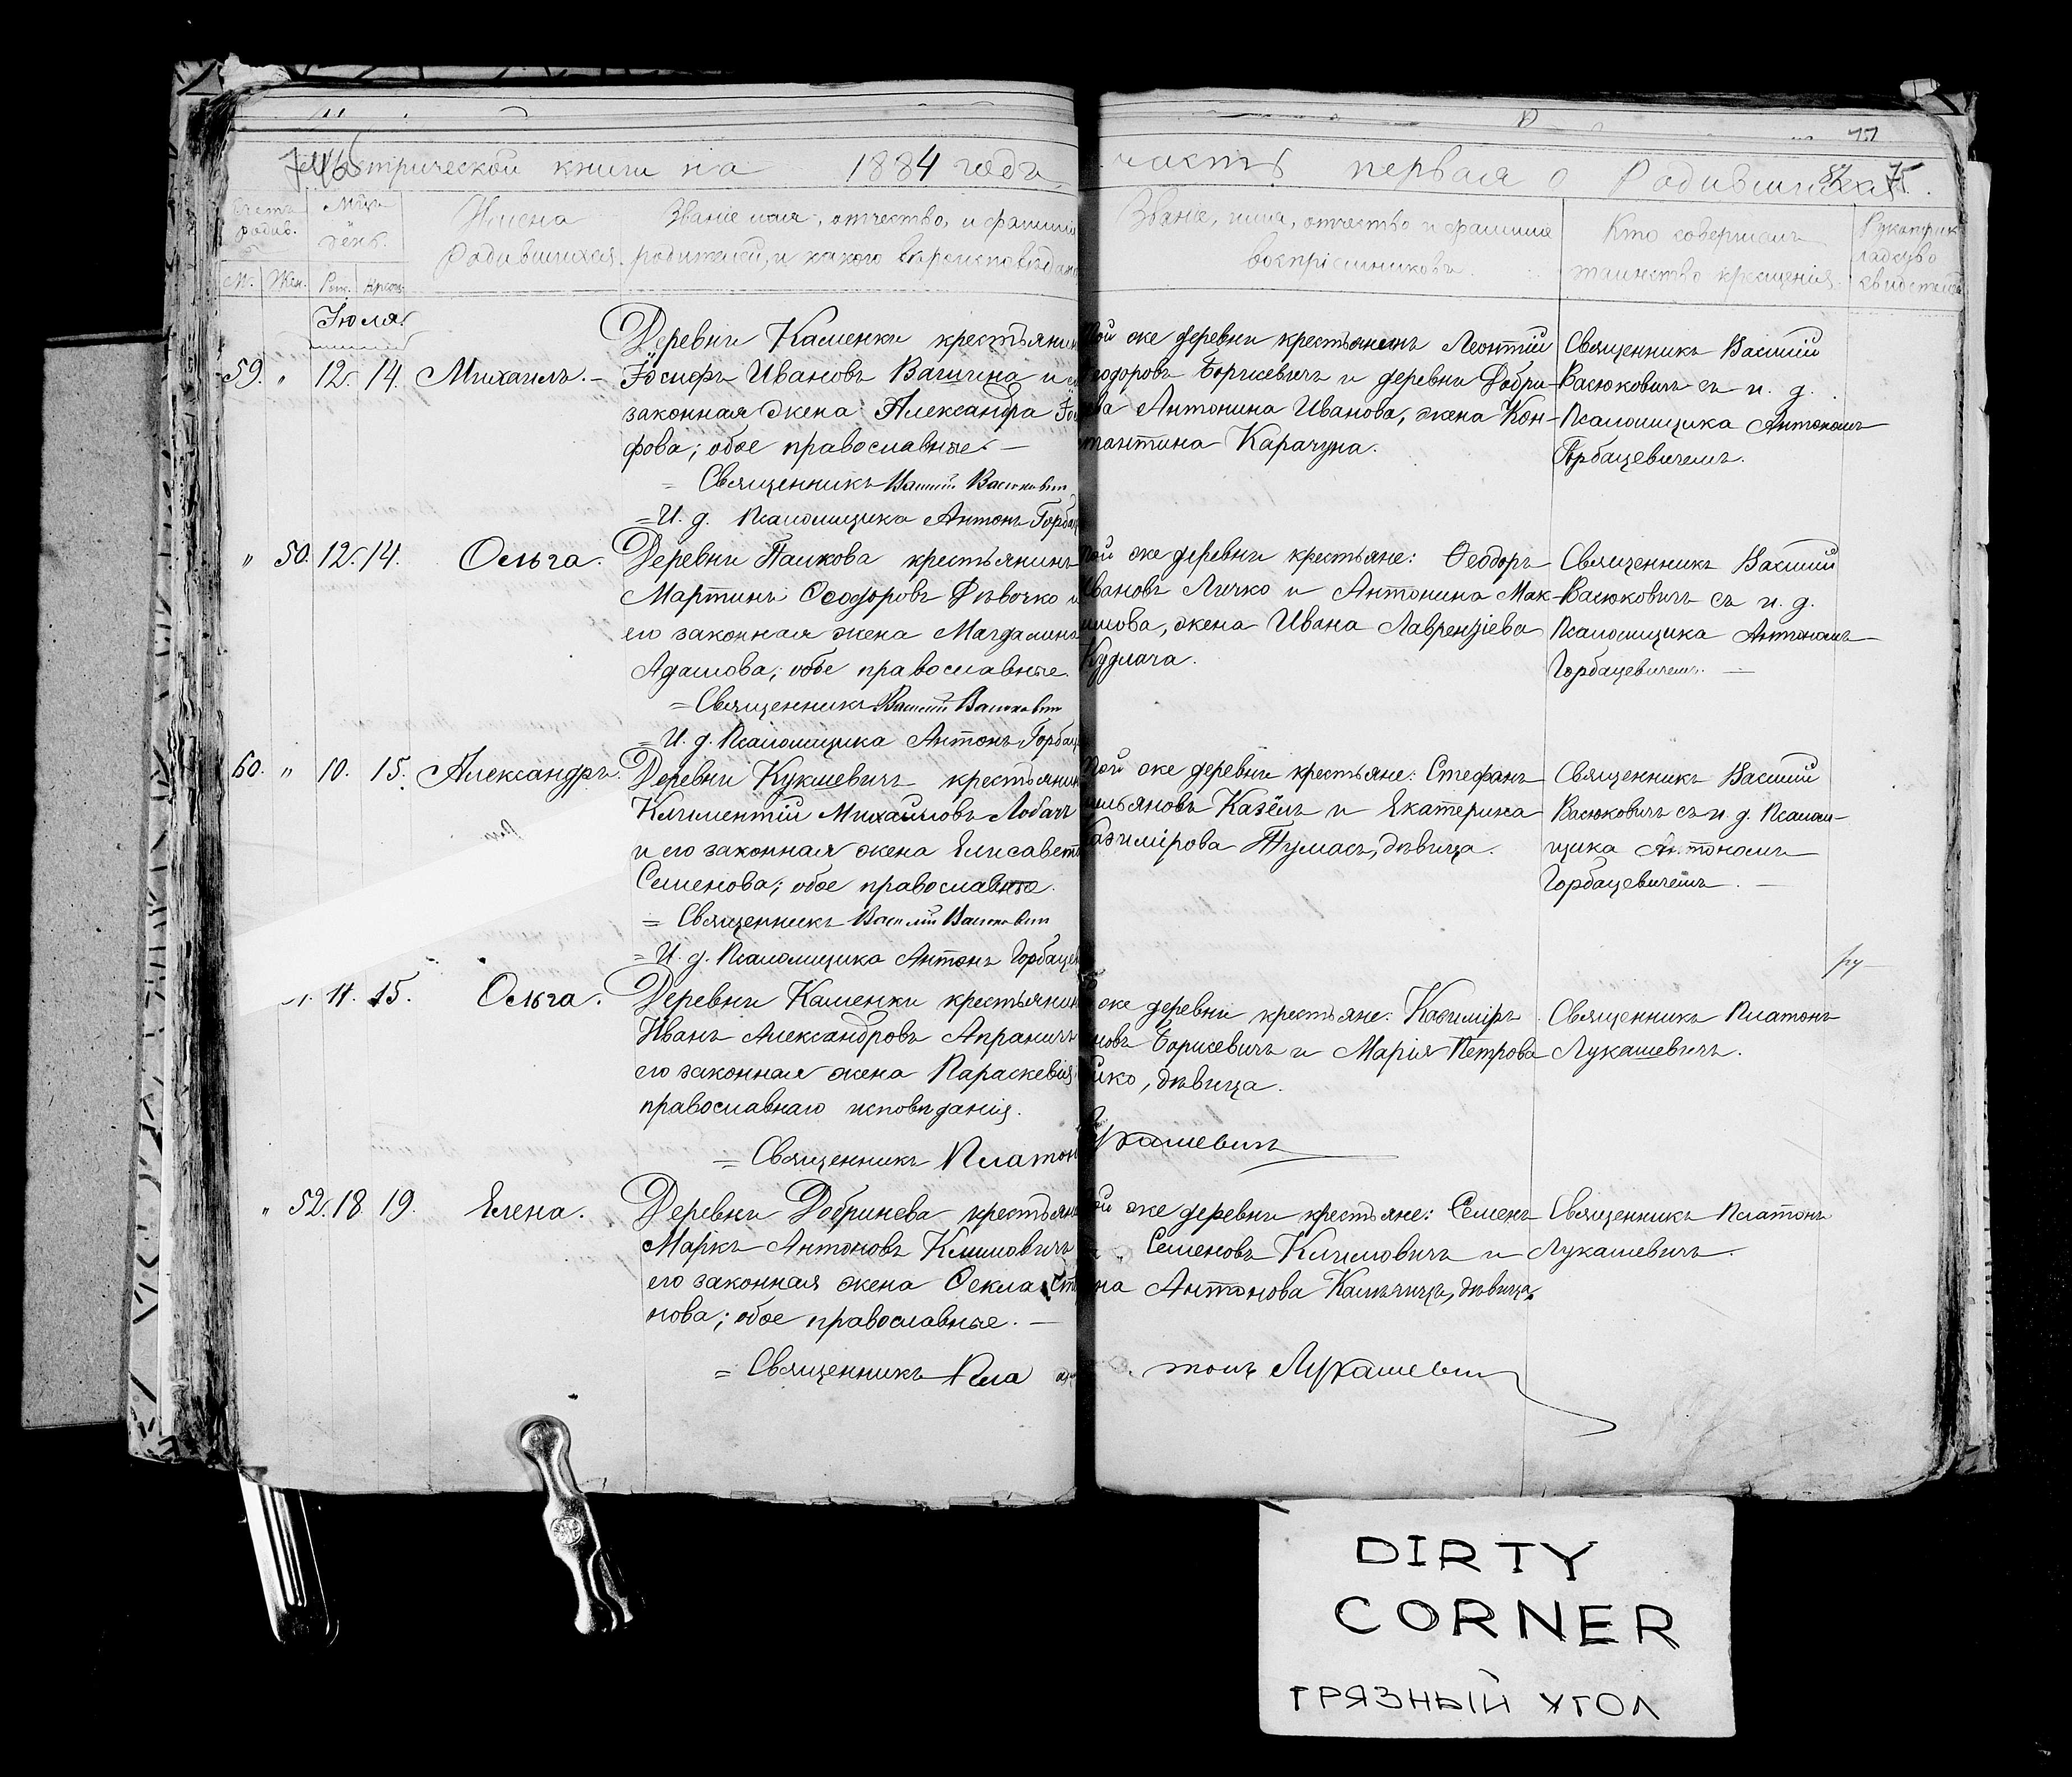 77
метрической книги на 1884 годъ часть первая о Родившихся.
Счетъ родив.
Мѣц. и день.
Имена родившихся.
Званіе имя, отчество, и фамилія
родителей, и какого вѣроисповѣданія
Званіе, имя, отчество и фамилія
воспріемниковъ.
Кто совершалъ
таинство крещенія.
Рукоприкладство свидетелей
М. Жен. Рож. Крещ.
Іюля.
59. " 12. 14. Михаилъ. –
Деревни Каменки крестьянинъ
Іосифъ Ивановъ Вагична и
законная жена Александра
фова; обое православные. –
= Священникъ Василій Васюкович
= И. д. Псаломщика Антонъ Горбац
Той же деревни крестьянинъ Леонтій
Ѳеодоровъ Борисевичъ и деревни Добри-
нева Антонина Иванова, жена Кон-
стантина Карачуна.
Священникъ Василій
Васюковичъ съ и. д.
Псаломщика Антономъ
Горбацевичемъ.
" 50. 12. 14. Ольга.
Деревни Палкова крестьянинъ
Мартинъ Ѳеодоровъ Дѣвочко и
его законная жена Магдалина
Адамова; обое православные.
= Священникъ Василій Васюкович
= И. д. Псаломщика Антонъ Горбац
Той же деревни крестьяне: Ѳеодоръ
Ивановъ Личко и Антонина Мак-
имова, жена Ивана Лаврентіева
Кудлача.
Священникъ Василій
Васюковичъ съ и. д.
Псаломщика Антономъ
Горбацевичемъ. –
60. " 10. 15. Александръ.
Деревни Кукшевичъ крестьянин
Климентій Михайловъ Лобачъ
и его законная жена Елисавета
Семенова; обое православные.
= Священникъ Василій Васюкович
= И. д. Псаломщика Антонъ Горбацев
Той же деревни крестьяне: Стефанъ
ильяновъ Казёлъ и Екатерина
Казимірова Тумасъ, дѣвица.
Священникъ Василій
Васюковичъ съ и. д. Псалом-
щика Антономъ
Горбацевичемъ. –
11. 15. Ольга.
Деревни Каменки крестьянин
Иванъ Александровъ Апраничъ
его законная жена Параскевія
православнаго исповѣданія.
= Священникъ Платонъ Лукашевичъ
же деревни крестьяне: Казиміръ
новъ Борисевичъ и Марія Петрова
ико, дѣвица.
Священникъ Платонъ
Лукашевичъ.
" 52. 18. 19. Елена.
Деревни Добринева крестьян
Маркъ Антоновъ Климовичъ
его законная жена Ѳекла Сте
нова; обое православные. –
= Священникъ Платонъ Лукашевичъ
Той же деревни крестьяне: Семенъ
Семеновъ Климовичъ и
на Антонова дѣвица.
Священникъ Платонъ
Лукашевичъ.
DIRTY
CORNER
ГРЯЗНЫЙ УГОЛ